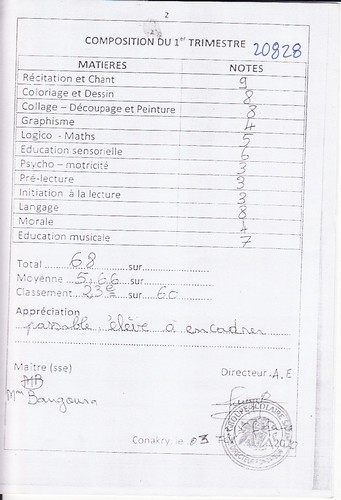 2
COMPOSITION DU 1er TRIMESTRE 20828
MATIERES NOTES
Récitation et Chant 9
Coloriage et Dessin 8
Collage – Découpage et Peinture 8
Graphisme 4
Logico - Maths 5
Education sensorielle 6
Psycho – motricité 3
Pré-lecture 3
Initiation à la lecture 3
Langage 8
Morale 4
Education musicale 7
Total ........68........ sur..................
Moyenne ....5,66.... sur..................
Classement ....23e.... sur....60
Appréciation
passable, élève à encadrer
Maitre (sse) Directeur.A.E
MB
Mme Bangoura
Conakry, le 03